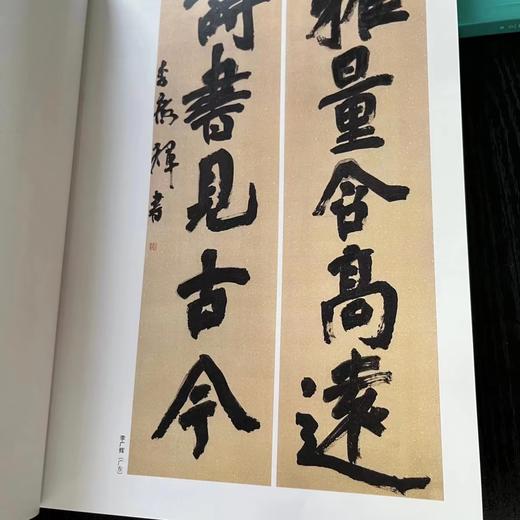 雅量含高遠
詩書見古今
李廣輝書
李广辉（广东）